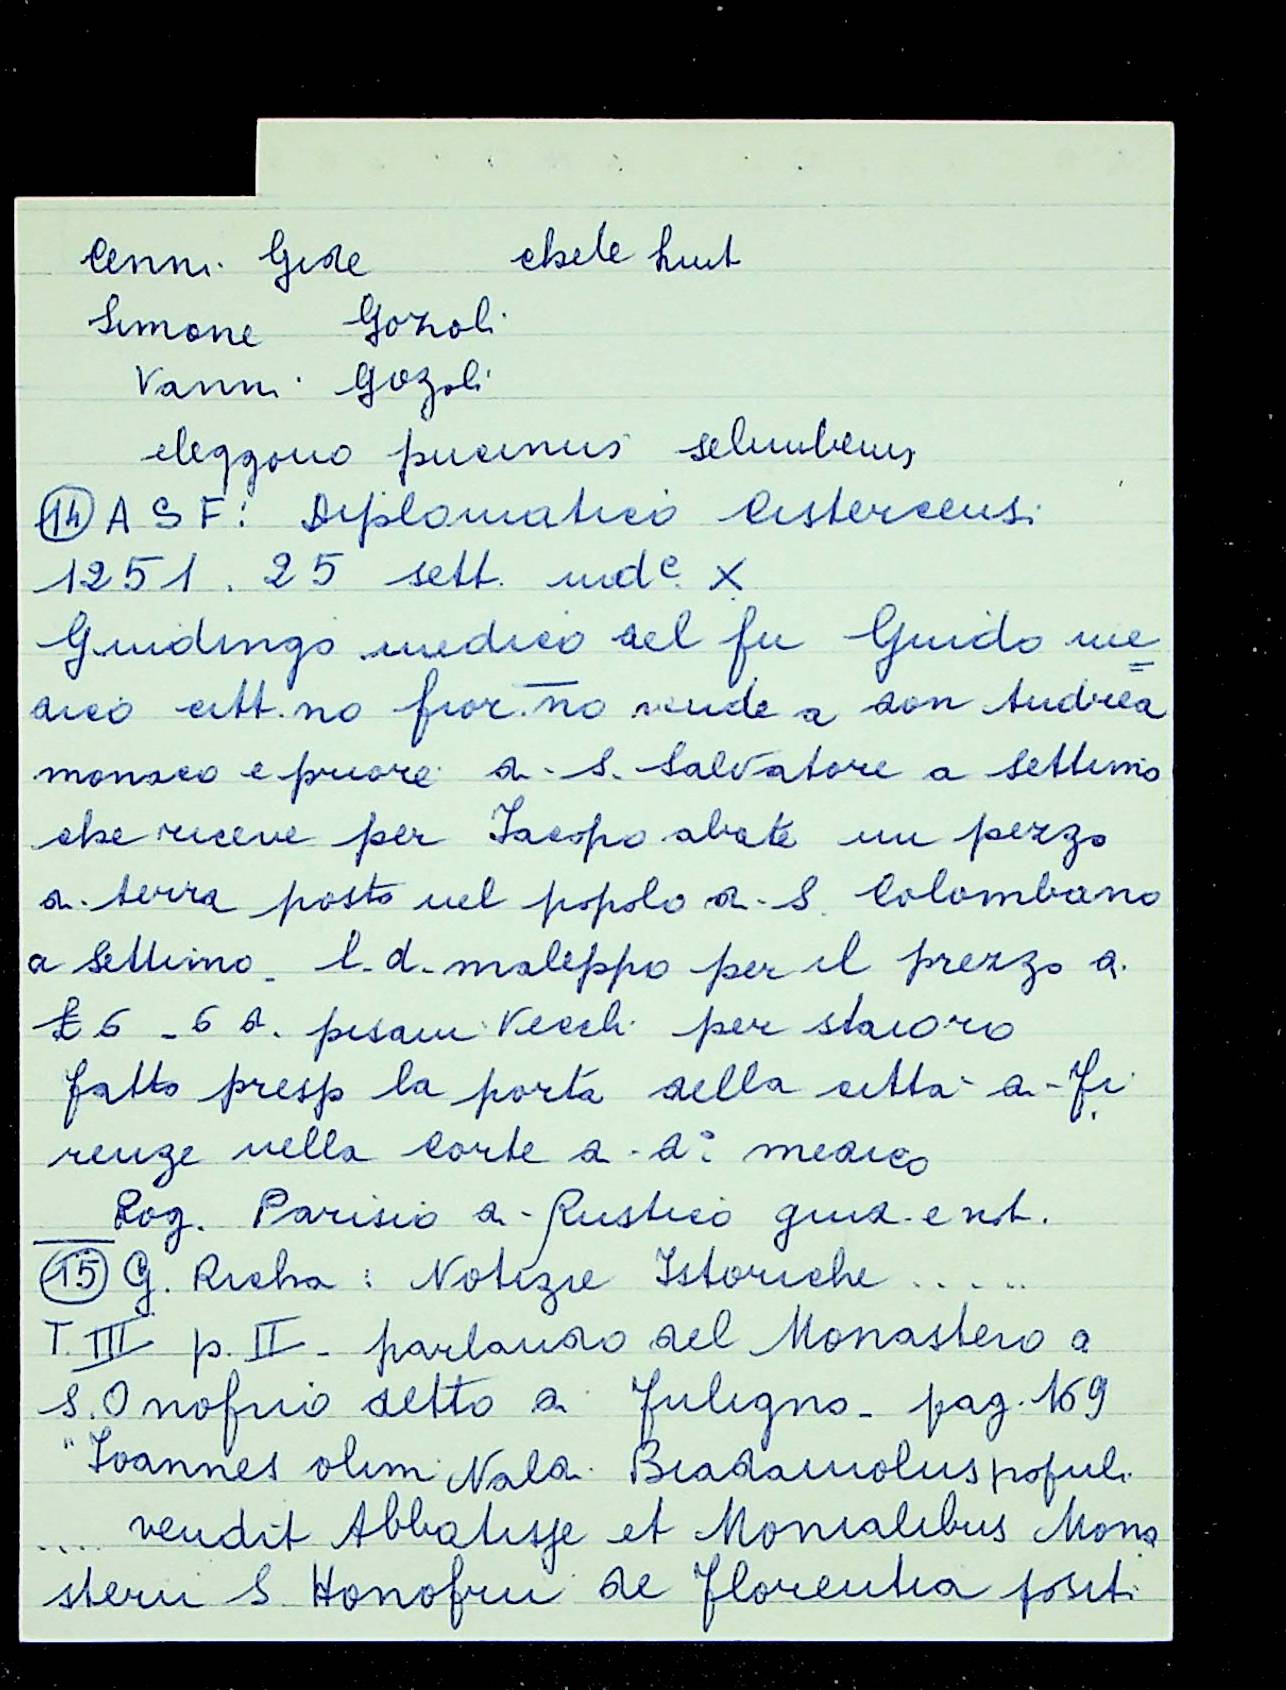 Cenni Gide
Simone Gozzoli
Vanni Gozoli
eleggono
14 A S F: Diplomatico Cistercensi
1251. 25 sett. ind.e X
Guidingo medico del fu Guido me=
dico citt.no fior.no vende a don Andrea
monaco e priore di S. Salvatore a Settimo
che riceve per Iacopo abate un pezzo
di terra posto nel popolo di S. Colombano
a Settimo - l.d. maleppo per il prezzo di
£ 6 - 6 d. pisani vecchi per staioro
fatto presso la porta della città di Fi
renze nella corte di d.o medico
Rog. Parisio di Rustico giud. e not.
15 G. Richa: Notizie Istoriche .....
T. III p. II - parlando del Monastero di
S. Onofrio detto di Fuligno - pag. 169
"Ioannes olim Naldi populi
.... vendit Abbatisse et Monialibus Mona
sterii S. Honofrii de Florentia positi